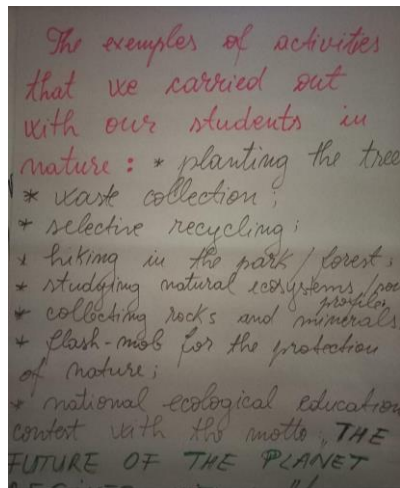 The exemples of activities
that we carried out
with our students in
nature: * planting the tree
* waste collection;
* selective recycling;
* hiking in the park/forest;
* studying natural ecosystems/
profiles
* collecting rocks and minerals
* flash-mob for the protection
of nature;
* national ecological education
contest with the motto „THE
FUTURE OF THE PLANET